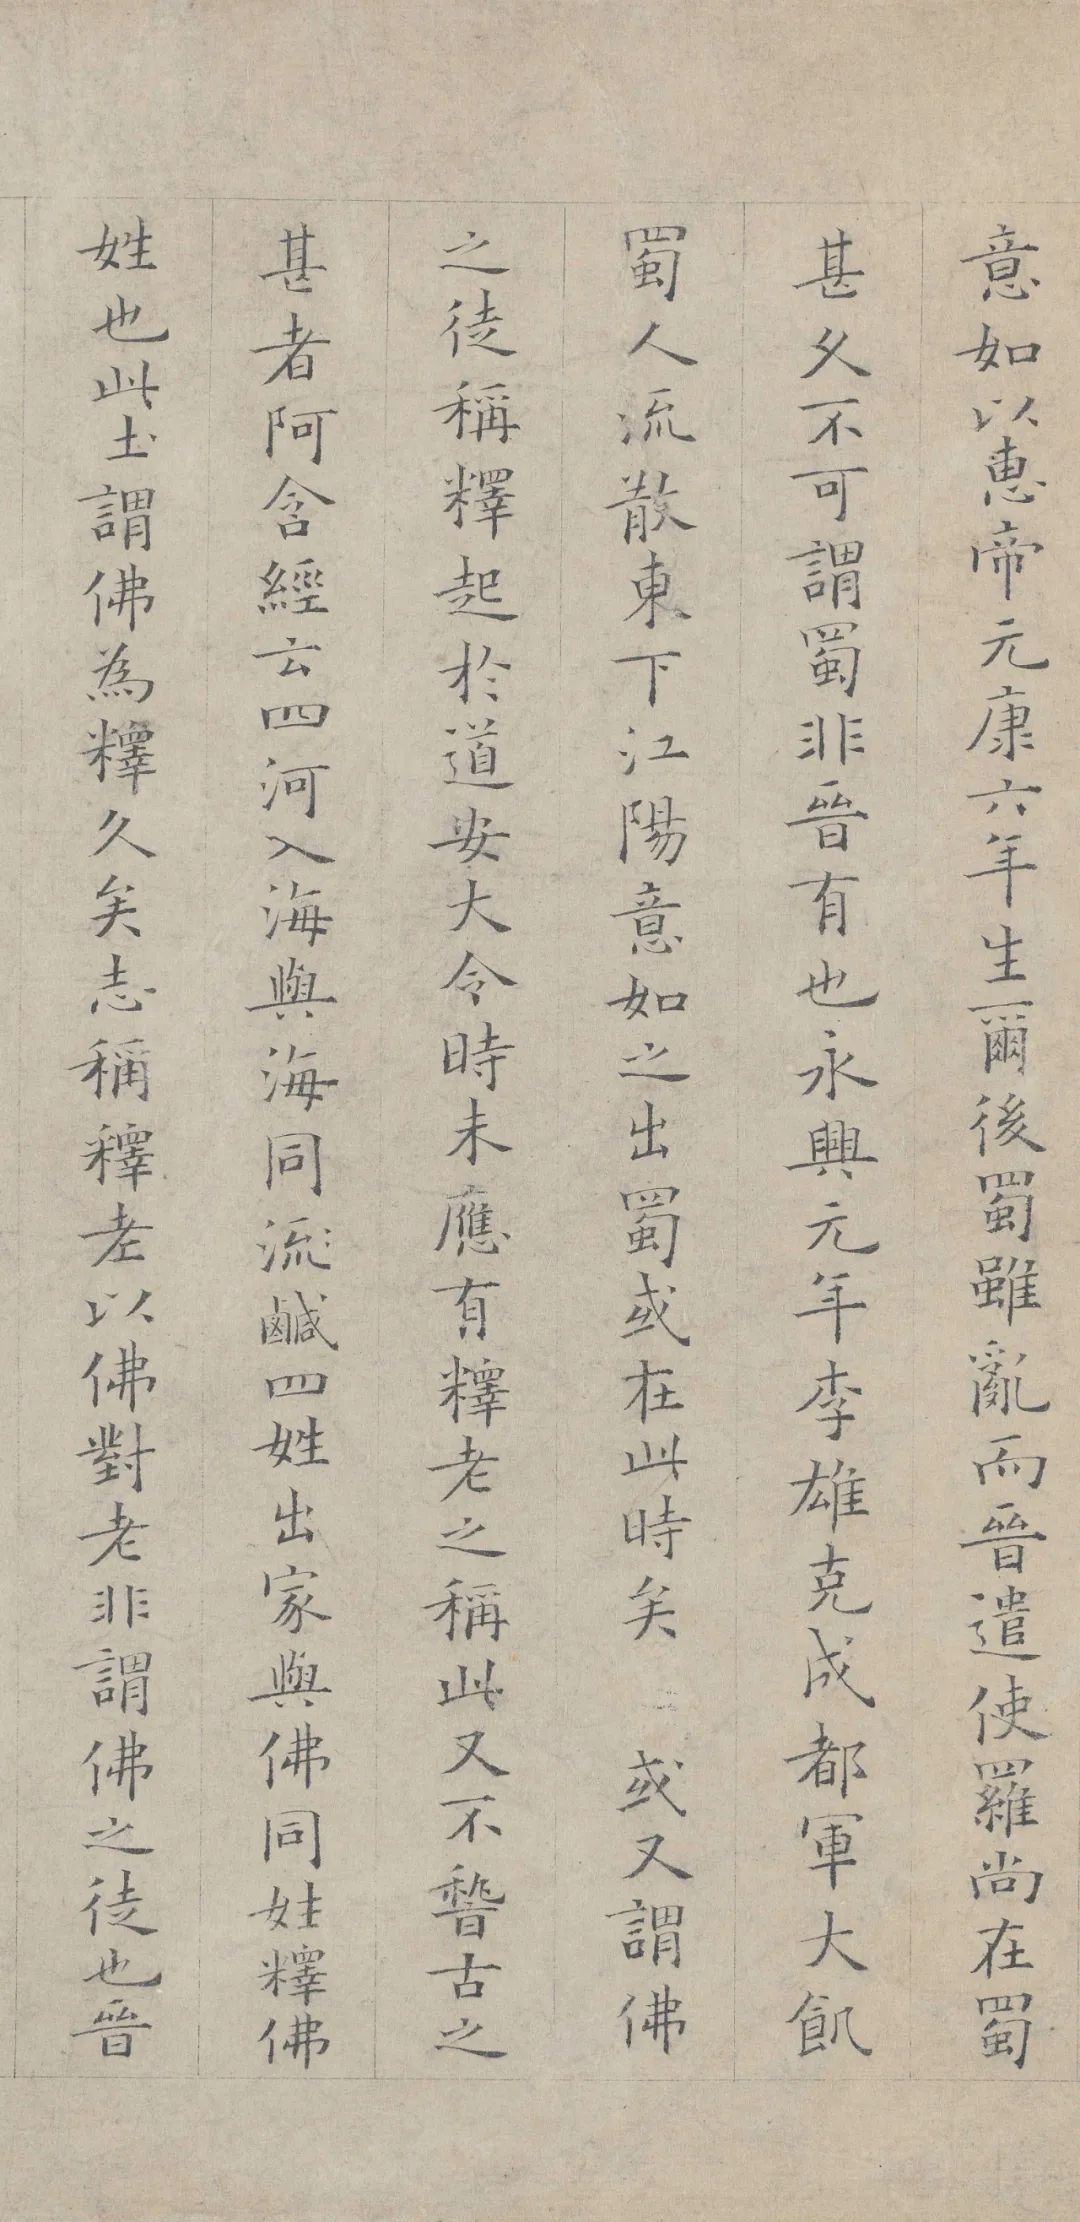 意如以惠帝元康六年生爾後蜀雖亂而晉遣使羅尚在蜀
甚久不可謂蜀非晉有也永興元年李雄克成都軍大飢
蜀人流散東下江陽意如之出蜀或在此時矣 或又謂佛
之徒稱釋起於道安大令時未應有釋老之稱此又不稽古之
甚者阿含經云四河入海與海同流鹹四姓出家與佛同姓釋佛
姓也此土謂佛為釋久矣志稱釋老以佛對老非謂佛之徒也晉